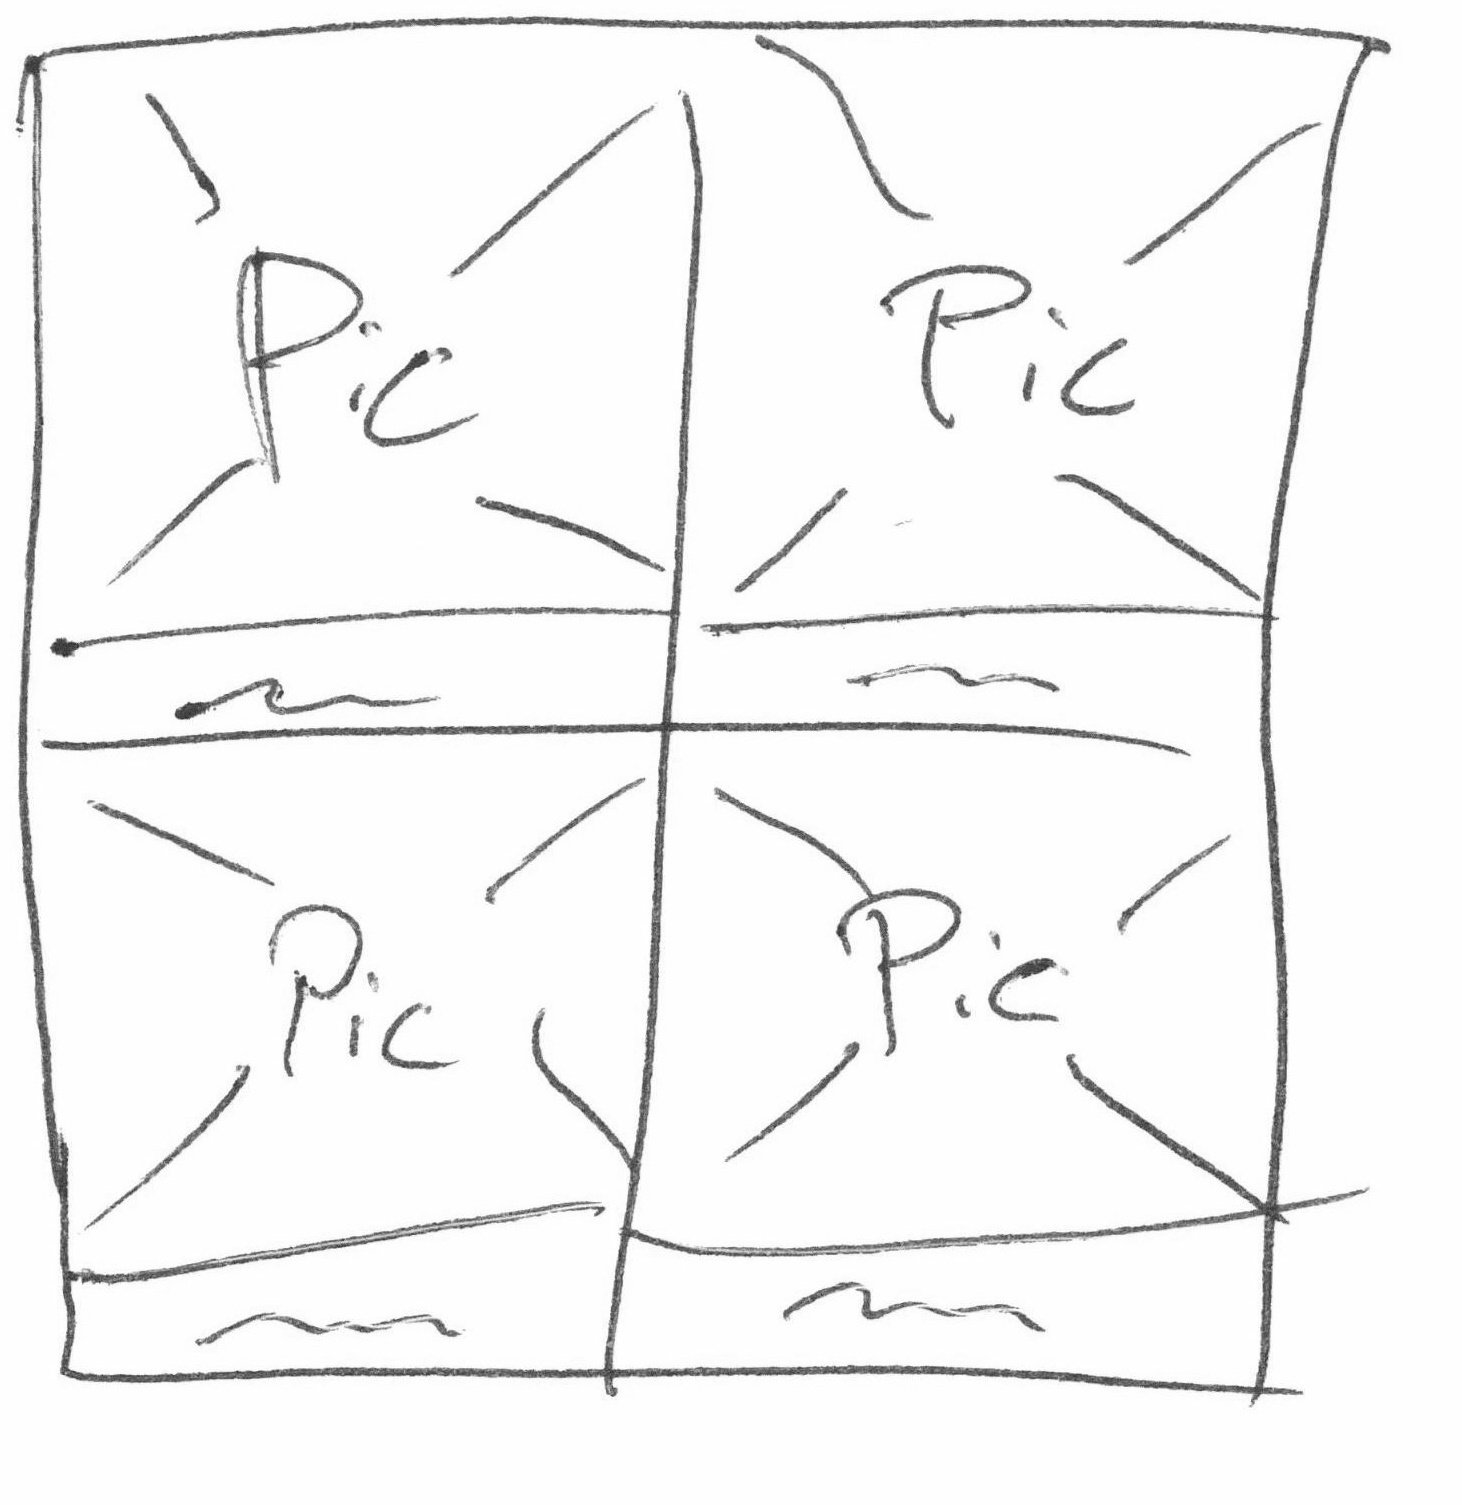 Pic
Pic
Pic
Pic